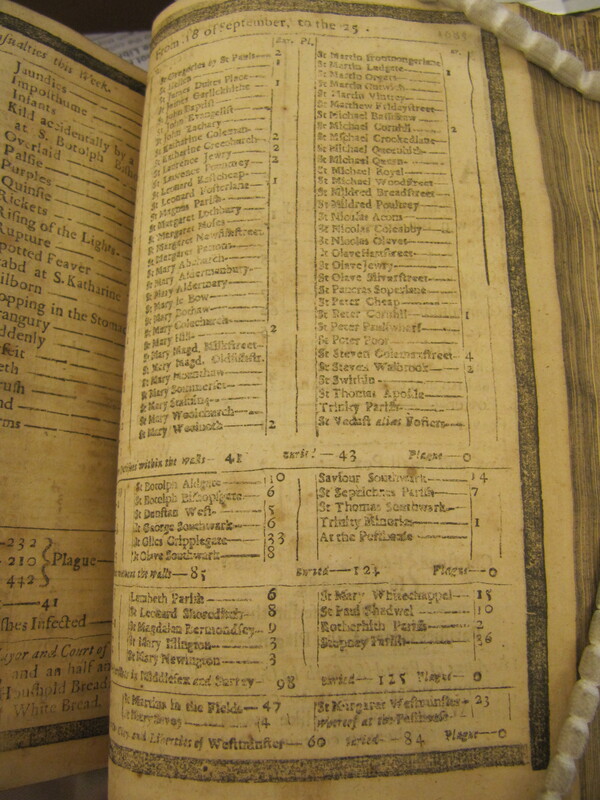 From 18 of September, to the 25.
Bur. Pl.
St Gregories by St Pauls 2
St James Dukes Place 1
St James Garlickhithe
St John Baptist 1
St John Evangelist
St John Zachary
St Katharine Coleman 2
St Katharine Creechurch 2
St Lawrence Jewry 2
St Lawrence Pountney
St Leonard Eastcheap
St Leonard Fosterlane 1
St Magnus Parish
St Margaret Lothbury
St Margaret Moses
St Margaret Newfishstreet
St Margaret Pattons
St Mary Abchurch
St Mary Aldermanbury
St Mary Aldermary
St Mary le Bow
St Mary Bothaw
St Mary Colechurch
St Mary Hill 2
St Mary Magd. Milkstreet
St Mary Magd. Oldfishstr.
St Mary Mounthaw
St Mary Sommerset
St Mary Staining
St Mary Woolchurch
St Mary Woolnoth 2
St Martin Ironmongerlane
St Martin Ludgate 1
St Martin Orgars
St Martin Outwich
St Martin Vintrey
St Matthew Fridaystreet
St Michael Bassishaw
St Michael Cornhil 2
St Michael Crookedlane
St Michael Queenhith
St Michael Quern
St Michael Royal
St Michael Woodstreet
St Mildred Breadstreet
St Mildred Poultrey
St Nicolas Acons
St Nicolas Coleabby
St Nicolas Olaves
St Olave Hartstreet
St Olave Jewry
St Olave Silverstreet
St Pancras Soperlane
St Peter Cheap
St Peter Cornhil 1
St Peter Paulswharf
St Peter Poor
St Steven Colemanstreet 4
St Steven Walbrook 2
St Swithin
St Thomas Apostle
Trinity Parish
St Vedast alias Fosters
within the walls 41 Buried 43 Plague 0
St Botolph Aldgate 10
St Botolph Bishopsgate 6
St Dunstan West 5
St George Southwark 6
St Giles Cripplegate 33
St Olave Southwark 8
Saviour Southwark 14
St Sepulchres Parish 7
St Thomas Southwark
Trinity Minories 1
At the Pesthouse
without the walls 85 Buried Plague 0
Lambeth Parish 6
St Leonard Shoreditch 8
St Magdalen Bermondsey 9
St Mary Islington 3
St Mary Newington 3
St Mary Whitechappel 15
St Paul Shadwel 10
Rotherhith Parish 2
Stepney Parish 36
in Middlesex and Surrey 98 Buried 125 Plague 0
St Martins in the Fields 47
St Mary Savoy 4
St Margaret Westminster 23
Whereof at the Pesthouse
City and Liberties of Westminster 60 Buried 84 Plague 0
Casualties this Week.
Jaundies
Imposthume
Infants
Kild accidentally by a
at S. Botolph
Overlaid
Palsie
Purples
Quinsie
Rickets
Rising of the Lights
Rupture
Spotted Feaver
at S. Katharine
Stilborn
Stopping in the Stomach
Strangury
Suddenly
Surfeit
Teeth
232
210 Plague
442
41
Parishes Infected
Mayor and Court of
and an half
Houshold Bread
White Bread.